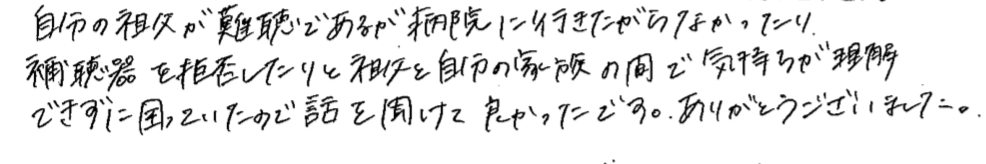 自分の祖父が難聴であるが病院に行きたがらなかったり
補聴器を拒否したりと祖父と自分の家族の間で気持ちが理解
できずに困っていたので話を聞けて良かったです。ありがとうございました。